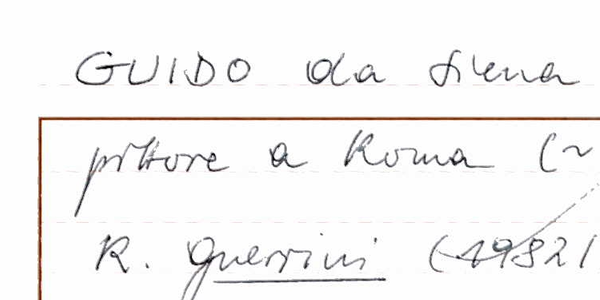 GUIDO da Siena
pittore a Roma (~
R. Guerrini (1982/